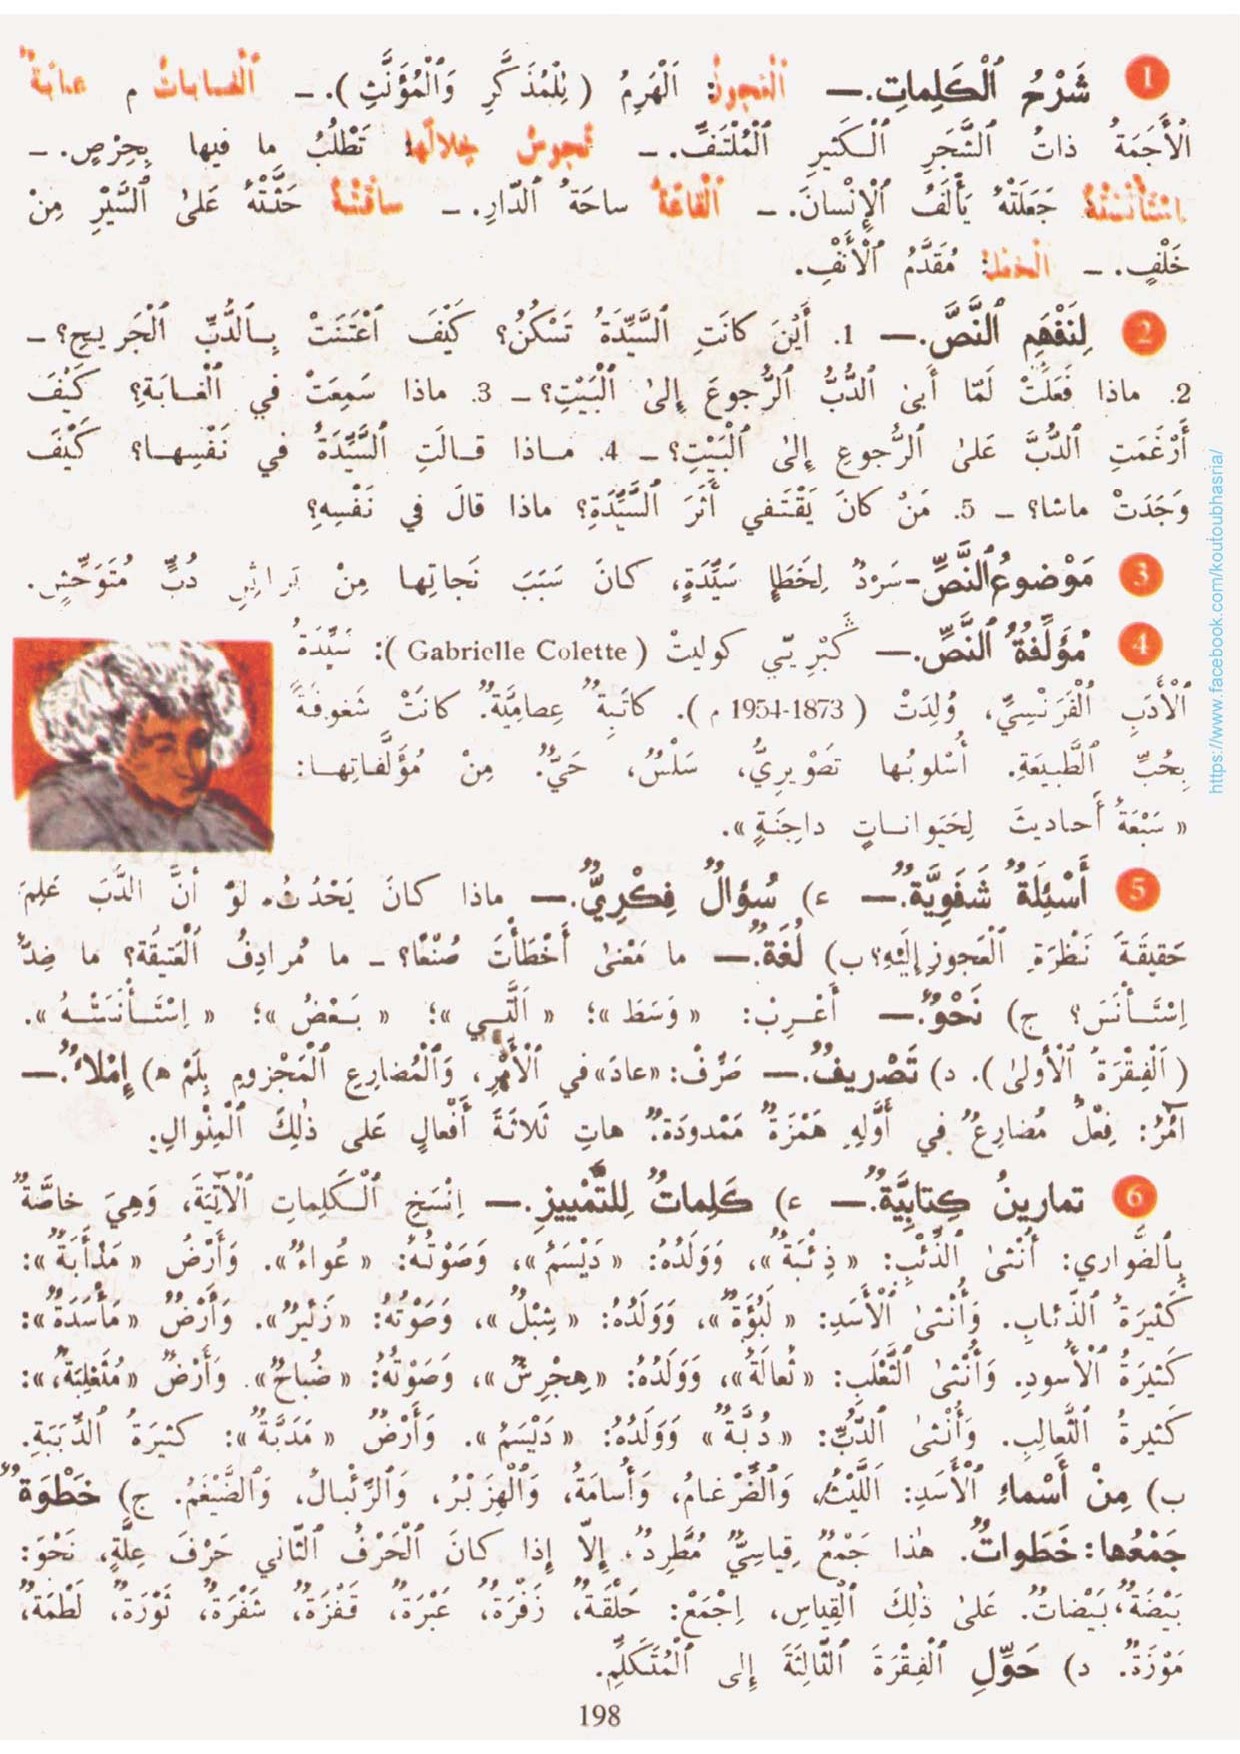 1 شَرْحُ ٱلْكَلِماتِ.— ٱلْعَجوزُ: اَلْهَرِمُ ( لِلْمُذَكَّرِ وَٱلْمُؤَنَّثِ ). — ٱلْغـابـاتُ م غـابَةٌ
ٱلْأَجَمَةُ ذاتُ ٱلشَّجَرِ ٱلْـكَثيرِ ٱلْمُلْتَفِّ. — تَجوسُ خِلالَها: تَطْلُبُ ما فيها بِحِرْصٍ. —
اِسْتَأْنَسَتْهُ: جَعَلَتْهُ يَأْلَفُ ٱلْإِنْسانَ. — ٱلْقاعَةُ ساحَةُ ٱلدّارِ. — ساقَتْهُ حَثَّتْهُ عَلىٰ ٱلسَّيْرِ مِنْ
خَلْفٍ. — مُقَدَّمُ ٱلْأَنْفِ.
2 لِنَفْهَمِ ٱلنَّصَّ.— 1. أَيْنَ كانَتِ ٱلسَّيِّدَةُ تَسْكُنُ؟ كَيْفَ ٱعْتَنَتْ بِـٱلدُّبِّ ٱلْجَريـحِ؟ —
2. ماذا فَعَلَتْ لَمّا أَبىٰ ٱلدُّبُّ ٱلرُّجوعَ إِلىٰ ٱلْبَيْتِ؟ — 3. ماذا سَمِعَتْ في ٱلْغـابَةِ؟ كَيْفَ
أَرْغَمَتِ ٱلدُّبَّ عَلىٰ ٱلرُّجوعِ إِلىٰ ٱلْبَيْتِ؟ — 4. مـاذا قـالَتِ ٱلسَّيِّدَةُ في نَفْسِهـا؟ كَيْفَ
وَجَدَتْ ماشا؟ — 5. مَنْ كانَ يَقْتَفي أَثَرَ ٱلسَّيِّدَةِ؟ ماذا قالَ في نَفْسِهِ؟
3 مَوْضوعُ ٱلنَّصِّ- سَرْدٌ لِخَطَإِ سَيِّدَةٍ، كـانَ سَبَبَ نَجاتِهـا مِنْ بَراثِنِ دُبٍّ مُتَوَحِّشٍ.
4 مُؤَلِّفَةُ ٱلنَّصِّ.— گَبْرِيّي كوليتْ ( Gabrielle Colette ): سَيِّدَةُ
ٱلْأَدَبِ ٱلْفَرَنْسِيِّ، وُلِدَتْ ( 1873-1954 م ). كاتِبَةٌ عِصامِيَّةٌ. كانَتْ شَغوفَةً
بِحُبِّ ٱلطَّبيعَةِ. أُسْلوبُـها تَصْويرِيٌّ، سَلْسٌ، حَيٌّ. مِنْ مُؤَلَّفاتِهـا:
« سَبْعَةُ أَحاديثَ لِحَيَوانـاتٍ داجِنَةٍ ».
5 أَسْئِلَةٌ شَفَوِيَّةٌ.— ء) سُؤالٌ فِكْرِيٌّ.— ماذا كـانَ يَحْدُثُ، لَوْ أَنَّ الدُّبَّ عَلِمَ
حَقيقَةَ نَظْرَةِ ٱلْعَجوزِ إِلَيْهِ؟ ب) لُغَةٌ.— ما مَعْنىٰ أَخْطَأْتَ صُنْعًا؟ — ما مُرادِفُ ٱلْعَتيقَة؟ ما ضِدُّ
اِسْتَـأْنَسَ؟ ج) نَحْوٌ.— أَعْـرِبْ: « وَسَطَ »؛ « ٱلَّتـي »؛ « بَـعْضُ »؛ « اِسْتَـأْنَسَتْـهُ ».
( اَلْفِقْرَةُ ٱلْأُولىٰ ). د) تَصْريفٌ.— صَرِّفْ: «عادَ» في ٱلْأَمْرِ، وَٱلْمُضارِعِ ٱلْمَجْزومِ بِلَمْ ه) إِمْلاءٌ.—
آمُرُ: فِعْلٌ مُضارِعٌ في أَوَّلِهِ هَمْزَةٌ مَمْدودَةٌ. هاتِ ثَلاثَةَ أَفْعالٍ عَلى ذٰلِكَ ٱلْمِنْوالِ.
6 تمارينُ كِتابِيَّةٌ.— ء) كَلِماتٌ لِلتَّمْييزِ.— اِنْسَخِ ٱلْـكَلِماتِ ٱلْآتِيَةَ، وَهِيَ خاصَّةٌ
بِٱلضَّواري: أُنْثىٰ ٱلذِّئْبِ: « ذِئْبَةٌ »، وَوَلَدُهُ: « دَيْسَمٌ »، وَصَوْتُـهُ: « عُواءٌ ». وَأَرْضٌ « مَذْأَبَةٌ »:
كَثيرَةُ ٱلذِّئابِ. وَأُنْثىٰ ٱلْأَسَدِ: « لَبُؤَةٌ »، وَوَلَدُهُ: « شِبْلٌ »، وَصَوْتُهُ: « زَئيرٌ ». وَأَرْضٌ « مَأْسَدَةٌ »:
كَثيرَةُ ٱلْأُسودِ. وَأُنْثىٰ ٱلثَّعْلَبِ: « ثُعالَةٌ »، وَوَلَدُهُ: « هِجْرِسٌ »، وَصَوْتُهُ: « ضُباحٌ ». وَأَرْضٌ « مُثَعْلِبَةٌ »:
كَثيرةُ ٱلثَّعالِبِ. وَأُنْثىٰ ٱلدُّبِّ: « دُبَّةٌ » وَوَلَدُهُ: « دَيْسَمٌ ». وَأَرْضٌ « مَدَبَّةٌ »: كثيرَةُ ٱلدِّبَبَةِ.
ب) مِنْ أَسْماءِ ٱلْأَسَدِ: اَللَّيْثُ، وَٱلضِّرْغـامُ، وَأُسامَةُ، وَٱلْهِزَبْرُ، وَٱلرِّئْبـالُ، وَٱلضَّيْغَمُ. ج) خَطْوَةٌ
جَمْعُها: خَطَواتٌ. هٰذا جَمْعٌ قِياسِيٌّ مُطَّرِدٌ، إِلّا إِذا كانَ ٱلْحَرْفُ ٱلثّاني حَرْفَ عِلَّةٍ، نَحْوَ:
بَيْضَةٌ، بَيْضاتٌ. عَلىٰ ذٰلِكَ ٱلْقِياسِ، اِجْمَعْ: حَلْقَةٌ، زَفْرَةٌ، عَبْرَةٌ، قَـفْزَةٌ، شَفْرَةٌ، ثَوْرَةٌ، لَطْمَةٌ،
مَوْزَةٌ. د) حَوِّلِ ٱلْفِقْرَةَ ٱلثّالِثَةَ إِلى ٱلْمُتَكَلِّمِ.
198
https://www.facebook.com/koutoubhasria/